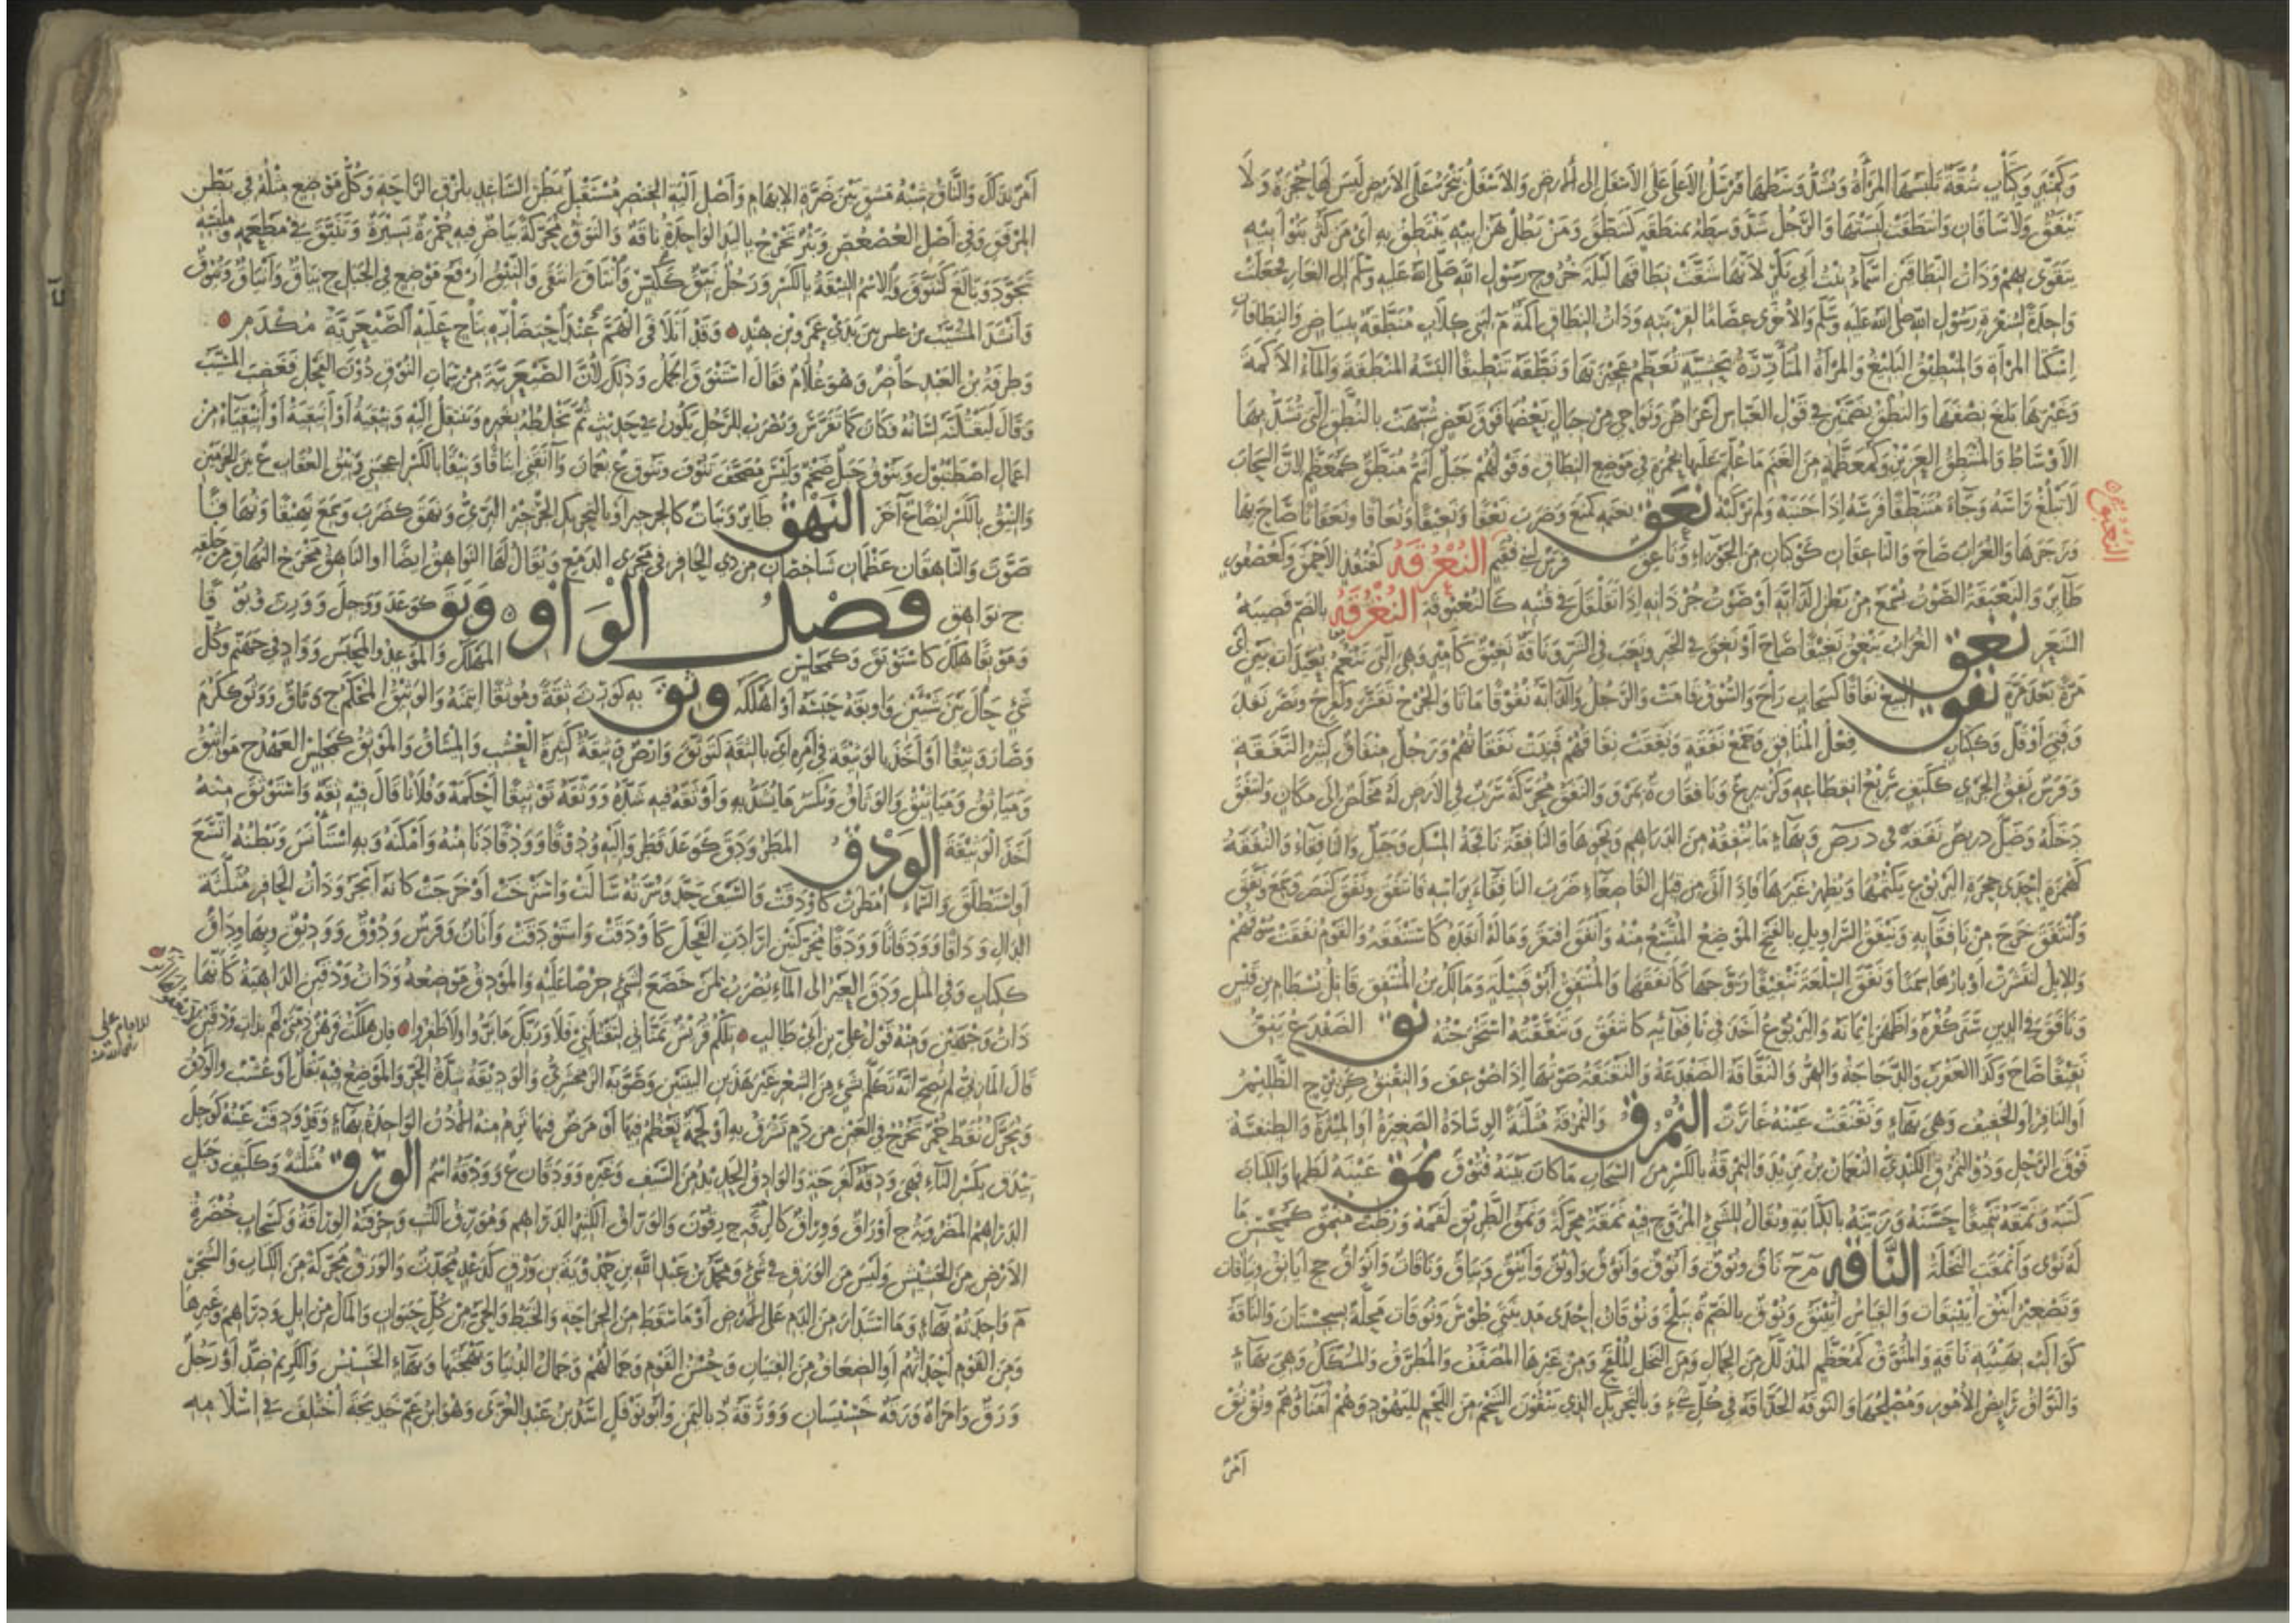 وَكَمِنْبَرٍ وَكِتَابٍ شُقَّةٌ تَلْبَسُهَا المَرْأَةُ وَتَشُدُّ وَسَطَهَا فَتُرْسِلُ الأَعْلَى عَلَى الأَسْفَلِ إلى الأرض وَالأَسْفَلُ يَنْجَرُّ عَلَى الأَرْضِ لَيْسَ لَهَا حُجْزَةٌ وَلَا
نَيْفَقٌ وَلَا سَاقَانِ وَانْتَطَقَتْ لَبِسَتْهَا وَالرَّجُلُ شَدَّ وَسَطَهُ بِمِنْطَقَةٍ كَتَنَطَّقَ وَمَنْ يَطُلْ هَنُ أبِيهِ يَنْتَطِقْ بِهِ اى مَنْ كَثُرَ بَنُو أبِيهِ
يَتَقَوَّى بِهِمْ وَذَاتُ النِّطَاقَيْنِ أَسْمَاءُ بِنْتُ أَبِي بَكْرٍ لِأَنَّهَا شَقَّتْ نِطَاقَهَا لَيْلَةَ خُرُوجِ رَسُولِ اللهِ صَلَّى الله عَلَيْهِ وَسَلَّمَ إلى الغَارِ فَجَعَلَتْ
وَاحِدَةً لِسُفْرَةِ رَسُولِ اللهِ صلى الله عَلَيْهِ وَسَلَّمَ وَالأُخْرَى عِصَامًا لِقِرْبَتِهِ وَذَاتُ النِّطَاقِ أَكَمَةٌ م لِبَنِي كِلَابٍ مُنَطَّقَةٌ بِبَيَاضٍ وَالنِّطَاقَانِ
إِسْكَتَا المَرْأَةِ وَالمِنْطِيقُ البَلِيغُ وَالمَرْأَةُ المُتَأَزِّرَةُ بِحَشِيَّةٍ تُعَظِّمُ عَجِيزَتَهَا وَنَطَّقَهُ تَنْطِيقًا أَلْبَسَهُ المِنْطَقَةَ وَالمَاءُ الأَكَمَةَ
وَغَيْرَهَا بَلَغَ نِصْفَهَا وَالنُّطُقُ بِضَمَّتَيْنِ فِي قَوْلِ العَبَّاسِ أَعْرَاضٌ وَنَوَاحِي مِنْ جِبَالٍ بَعْضُهَا فَوْقَ بَعْضٍ شُبِّهَتْ بِالنُّطُقِ الَّتِي تُشَدُّ بِهَا
الأَوْسَاطُ وَالمُنْتَطِقُ العَزِيزُ وَكَمُعَظَّمَةٍ مِنَ الغَنَمِ مَا عُلِّمَ عَلَيْهَا بِحُمْرَةٍ فِي مَوْضِعِ النِّطَاقِ وَقَوْلُهُمْ جَبَلٌ أَشَمُّ مُنَطَّقٌ كَمُعَظَّمٍ لِأَنَّ السَّحَابَ
لَا تَبْلُغُ رَأْسَهُ وَجَاءَ مُنْتَطِقًا فَرَسَهُ إِذَا جَنَبَهُ وَلَمْ يَرْكَبْهُ نَعَقَ بِغَنَمِهِ كَمَنَعَ وَضَرَبَ نَعْقًا وَنَعِيقًا وَنُعَاقًا وَنَعَقَانًا صَاحَ بِهَا
وَزَجَرَهَا وَالغُرَابُ صَاحَ وَالنَّاعِقَانِ كَوْكَبَانِ مِنَ الجَوْزَاءِ وَنَاعِقٌ فَرَسٌ لِبَنِي فُقَيْمٍ النُّغْرُقَهُ كَقُنْفُذٍ الأَحْمَقُ وَكَعُصْفُورٍ
طَائِرٌ وَالنَّغْبَقَةُ الصَّوْتُ يُسْمَعُ مِنْ بَطْنِ الدَّابَّةِ أَوْ صَوْتُ جُرْدَانِهِ إِذَا تَقَلْقَلَ فِي قُنْبِهِ كَالنُّغْبُوقَةِ النُّغْرُقَةُ بِالضَّمِّ قَصِيبَةُ
الشَّعَرِ نَغَقَ الغُرَابُ يَنْغِقُ نَغِيقًا صَاحَ أَوْ نَغَقَ فِي الخَيْرِ وَنَعَبَ فِي الشَّرِّ وَنَاقَةٌ نَغِيقٌ كَأَمِيرٍ وَهِيَ الَّتِي تَبْغُمُ بُعَيْدَاتِ بَيْنٍ أَيْ
مَرَّةً بَعْدَ مَرَّةٍ نَفَقَ البَيْعُ نَفَاقًا كَسَحَابٍ رَاجَ وَالسُّوقُ قَامَتْ وَالرَّجُلُ وَالدَّابَّةُ نُفُوقًا مَاتَا وَالجُرْحُ تَقَشَّرَ وَكَفَرِحَ وَنَصَرَ نَفِدَ
وَفَنِيَ أَوْ قَلَّ وَكَكِتَابٍ فِعْلُ المُنَافِقِ وَجَمْعُ نَفَقَةٍ وَنَفِقَتْ نِفَاقُهُمْ فَنِيَتْ نَفَقَاتُهُمْ وَرَجُلٌ مِنْفَاقٌ كَثِيرُ النَّفَقَةِ
وَفَرَسٌ نَفِقُ الجَرْيِ كَكَتِفٍ سَرِيعُ انْقِطَاعِهِ وَكَزُبَيْرٍ ع وَنَافِقَانُ ة بِمَرْوَ وَالنَّفَقُ مُحَرَّكَةً سَرَبٌ فِي الأَرْضِ لَهُ مَخْلَصٌ إِلَى مَكَانٍ وَانْتَفَقَ
دَخَلَهُ وَضَلَّ دُرَيْصٌ نَفَقَهُ فِي د ر ص وَبِهَاءٍ مَا تُنْفِقُهُ مِنَ الدَّرَاهِمِ وَنَحْوِهَا وَالنَّافِقَةُ نَافِجَةُ المِسْكِ وَجَبَلٌ وَالنَّافِقَاءُ وَالنُّفَقَةُ
كَهُمَزَةٍ إِحْدَى جِحَرَةِ اليَرْبُوعِ يَكْتُمُهَا وَيُظْهِرُ غَيْرَهَا فَإِذَا أُتِيَ مِنْ قِبَلِ القَاصِعَاءِ ضَرَبَ النَّافِقَاءَ بِرَأْسِهِ فَانْتَفَقَ وَنَفَقَ كَنَصَرَ وَسَمِعَ وَنَفَّقَ
وَانْتَفَقَ خَرَجَ مِنْ نَافِقَائِهِ وَنَيْفَقُ السَّرَاوِيلِ بِالفَتْحِ المَوْضِعُ المُتَّسِعُ مِنْهُ وَأَنْفَقَ افْتَقَرَ وَمَالَهُ أَنْفَدَهُ كَاسْتَنْفَقَهُ وَالقَوْمُ نَفَقَتْ سُوقُهُمْ
وَالإِبِلُ انْتَشَرَتْ أَوْبَارُهَا سِمَنًا وَنَفَّقَ السِّلْعَةَ تَنْفِيقًا رَوَّجَهَا كَأَنْفَقَهَا وَالمُنْتَفِقُ أَبُو قَبِيلَةٍ وَمَالِكُ بْنُ المُنْتَفِقِ قَاتِلُ بِسْطَامِ بْنِ قَيْسٍ
وَنَافَقَ فِي الدِّينِ سَتَرَ كُفْرَهُ وَأَظْهَرَ إِيمَانَهُ وَاليَرْبُوعُ أَخَذَ فِي نَافِقَائِهِ كَانْتَفَقَ وَتَنَفَّقْتُهُ اسْتَخْرَجْتُهُ نَقَّ الضِّفْدَعُ يَنِقُّ
نَقِيقًا صَاحَ وَكَذَا العَقْرَبُ وَالدَّجَاجَةُ وَالهِرُّ وَالنَّقَّاقَةُ الضِّفْدَعَةُ وَالنَّقْنَقَةُ صَوْتُهَا إِذَا ضُوعِفَ وَالنِّقْنِقُ كَزِبْرِجٍ الظَّلِيمُ
أَوِ النَّافِرُ أَوِ الخَفِيفُ وَهِيَ بِهَاءٍ وَنَقْنَقَتْ عَيْنُهُ غَارَتْ النُّمْرُقُ وَالنُّمْرُقَةُ مُثَلَّثَةً الوِسَادَةُ الصَّغِيرَةُ أَوِ المِيثَرَةُ وَالطِّنْفِسَةُ
فَوْقَ الرَّحْلِ وَذُو النُّمْرُقِ الكِنْدِيُّ النُّعْمَانُ بْنُ يَزِيدَ وَالنِّمْرِقَةُ بِالكَسْرِ مِنَ السَّحَابِ مَا كَانَ بَيْنَهُ فُتُوقٌ نَمَقَ عَيْنَهُ لَطَمَهَا وَالكِتَابَ
كَتَبَهُ وَنَمَّقَهُ تَنْمِيقًا حَسَّنَهُ وَزَيَّنَهُ بِالكِتَابَةِ وَيُقَالُ لِلشَّيْءِ المُرَوَّحِ فِيهِ نَمَقَةٌ مُحَرَّكَةً وَنَمَقُ الطَّرِيقِ لَقَمُهُ وَرُطَبٌ مُنْمِقٌ كَمُحْسِنٍ مَا
لَهُ نَوًى وَأَنْمَقَتِ النَّخْلَةُ النَّاقَهُ م ج نَاقٌ وَنُوقٌ وَأَنْوُقٌ وَأَنْؤُقٌ وَأَوْنُقٌ وَأَيْنُقٌ وَنِيَاقٌ وَنَاقَاتٌ وَأَنْوَاقٌ جج أَيَانِقُ وَنِيَاقَاتٌ
وَتَصْغِيرُ أَيْنُقٍ أُيَيْنِقَاتٌ وَالقِيَاسُ أُيَيْنِقٌ وَنُوقٌ بِالضَّمِّ ة بِبَلْخَ وَنُوقَانُ إِحْدَى مَدِينَتَيْ طُوسَ وَنُوقَاتُ مَحَلَّةٌ بِسِجِسْتَانَ وَالنَّاقَةُ
كَوَاكِبُ بِهَيْئَةِ نَاقَةٍ وَالمُنَوَّقُ كَمُعَظَّمٍ المُذَلَّلُ مِنَ الجِمَالِ وَمِنَ النَّخْلِ المُلَقَّحُ وَمِنْ غَيْرِهَا المُصَفَّفُ وَالمُطَرَّقُ وَالمُسَكَّكُ وَهِيَ بِهَاءٍ
وَالنَّوَّاقُ رَائِضُ الأُمُورِ وَمُصْلِحُهَا وَالنُّوقَةُ الحَذَاقَةُ فِي كُلِّ شَيْءٍ وَبِالتَّحْرِيكِ الَّذِينَ يُنَقُّونَ الشَّحْمَ مِنَ اللَّحْمِ لِلْيَهُودِ وَهُمْ أُمَنَاؤُهُمْ وَنُقْ نُقْ
أَمْرٌ
أَمْرٌ بِذَلِكَ وَالنَّاقُ شِبْهُ مَشَقٍّ بَيْنَ ضَرَّةِ الإِبْهَامِ وَأَصْلِ أَلْيَةِ الخِنْصِرِ مُسْتَقْبِلَ بَطْنِ السَّاعِدِ بِلِزْقِ الرَّاحَةِ وَكُلُّ مَوْضِعٍ مِثْلُهُ فِي بَطْنِ
المِرْفَقِ وَفِي أَصْلِ العُصْعُصِ وَبَثْرٌ يَخْرُجُ بِاليَدِ الوَاحِدَةُ نَاقَةٌ وَالنَّوَقُ مُحَرَّكَةً بَيَاضٌ فِيهِ حُمْرَةٌ يَسِيرَةٌ وَتَنَيَّقَ فِي مَطْعَمِهِ وَمَلْبَسِهِ
تَجَوَّدَ وَبَالَغَ كَتَنَوَّقَ وَالاسْمُ النِّيقَةُ بِالكَسْرِ وَرَجُلٌ نَيِّقٌ كَكَيِّسٍ وَانْتَاقَ انْتَقَى وَالنِّيقُ أَرْفَعُ مَوْضِعٍ فِي الجَبَلِ ج نِيَاقٌ وَأَنْيَاقٌ وَنُيُوقٌ
وَأَنْشَدَ المُسَيَّبُ بْنُ عَلَسٍ بَيْنَ يَدَيْ عَمْرِو بْنِ هِنْدٍ وَقَدْ أَتَلَافَى الهَمَّ عِنْدَ احْتِضَارِهِ بِنَاجٍ عَلَيْهِ الصَّيْعَرِيَّةُ مُكْدَمِ
وَطَرَفَةُ بْنُ العَبْدِ حَاضِرٌ وَهُوَ غُلَامٌ فَقَالَ اسْتَنْوَقَ الجَمَلُ وَذَلِكَ لِأَنَّ الصَّيْعَرِيَّةَ مِنْ سِمَاتِ النُّوقِ دُونَ الفَحْلِ فَغَضِبَ المُسَيَّبُ
وَقَالَ لَيَقْتُلَنَّهُ لِسَانُهُ فَكَانَ كَمَا تَفَرَّسَ وَيُضْرَبُ لِلرَّجُلِ يَكُونُ فِي حَدِيثٍ ثُمَّ يَخْلِطُهُ بِغَيْرِهِ وَيَنْتَقِلُ إِلَيْهِ وَنِيقِيَةُ أَوْ أَنِيقِيَةُ أَوْ أَنِيقِيَاءُ مِنْ
اعمال اصْطَنْبُولَ وَيَنُوقُ جَبَلٌ ضَخْمٌ وَلَيْسَ مُصَحَّفَ تَنُوفَ وَتَنُوقُ ع بِعُمَانَ وَآنَقَنِي إِينَاقًا وَنِيقًا بِالكَسْرِ أَعْجَبَنِي وَنِيقُ العُقَابِ ع بَيْنَ الحَرَمَيْنِ
وَالنِّيقُ بِالكَسْرِ أَيْضًا ع آخَرُ النَّهْقُ طَائِرٌ وَنَبَاتٌ كَالجِرْجِيرِ أَوْ بِالتَّحْرِيكِ الجِرْجِيرُ البَرِّيُّ وَنَهَقَ كَضَرَبَ وَسَمِعَ نَهِيقًا وَنُهَاقًا
صَوَّتَ وَالنَّاهِقَانِ عَظْمَانِ شَاخِصَانِ مِنْ ذِي الحَافِرِ فِي مَجْرَى الدَّمْعِ وَيُقَالُ لَهَا النَّوَاهِقُ أَيْضًا أَوِ النَّاهِقُ مَخْرَجُ النُّهَاقِ مِنْ حَلْقِهِ
ج نَوَاهِقُ فَصْلُ الوَاوِ وَبَقَ كَوَعَدَ وَوَجِلَ وَوَرِثَ وُبُوقًا
وَمَوْبِقًا هَلَكَ كَاسْتَوْبَقَ وَكَمَجْلِسٍ المَهْلَكُ وَالمَوْعِدُ وَالمَحْبَسُ وَوَادٍ فِي جَهَنَّمَ وَكُلُّ
شَيْءٍ حَالَ بَيْنَ شَيْئَيْنِ وَأَوْبَقَهُ حَبَسَهُ أَوْ أَهْلَكَهُ وَثِقَ بِهِ كَوَرِثَ ثِقَةً وَمَوْثِقًا ائْتَمَنَهُ وَالوَثِيقُ المُحْكَمُ ج وِثَاقٌ وَوَثُقَ كَكَرُمَ
وَصَارَ وَثِيقًا أَوْ أَخَذَ بِالوَثِيقَةِ فِي أَمْرِهِ أَيْ بِالثِّقَةِ كَتَوَثَّقَ وَأَرْضٌ وَثِيقَةٌ كَثِيرَةُ العُشْبِ وَالمِيثَاقُ وَالمَوْثِقُ كَمَجْلِسٍ العَهْدُ ج مَوَاثِيقُ
وَمَيَاثِقُ وَمَيَاثِيقُ وَالوَثَاقُ وَيُكْسَرُ مَا يُشَدُّ بِهِ وَأَوْثَقَهُ فِيهِ شَدَّهُ وَوَثَّقَهُ تَوْثِيقًا أَحْكَمَهُ وَفُلَانًا قَالَ فِيهِ ثِقَةٌ وَاسْتَوْثَقَ مِنْهُ
أَخَذَ الوَثِيقَةَ الوَدْقُ المَطَرُ وَدَقَ كَوَعَدَ قَطَرَ وَإِلَيْهِ وُدُوقًا وَوَدْقًا دَنَا مِنْهُ وَأَمْكَنَهُ وَبِهِ اسْتَأْنَسَ وَبَطْنُهُ اتَّسَعَ
أَوِ اسْتَطْلَقَ وَالسَّمَاءُ أَمْطَرَتْ كَأَوْدَقَتْ وَالسَّيْفُ حَدَّ وَسُرَّتُهُ سَالَتْ وَاسْتَرْخَتْ أَوْ خَرَجَتْ كَأَنَّهُ أَبْجَرُ وَذَاتُ الحَافِرِ مُثَلَّثَةً
الدَّالِ وَدَاقًا وَوَدَقَانًا وَوَدَقًا مُحَرَّكَتَيْنِ أَرَادَتِ الفَحْلَ كَأَوْدَقَتْ وَاسْتَوْدَقَتْ وَأَتَانٌ وَفَرَسٌ وَدُوقٌ وَوَدِيقٌ وَبِهَا وِدَاقٌ
كَكِتَابٍ وَفِي المَثَلِ وَدَقَ العَيْرُ إِلَى المَاءِ يُضْرَبُ لِمَنْ خَضَعَ لِشَيْءٍ حِرْصًا عَلَيْهِ وَالمَوْدِقُ مَوْضِعُهُ وَذَاتُ وَدْقَيْنِ الدَّاهِيَةُ كَأَنَّهَا
ذَاتُ وَجْهَيْنِ وَمِنْهُ قَوْلُ عَلِيِّ بْنِ أَبِي طَالِبٍ تِلْكُمْ قُرَيْشٌ تَمَنَّانِي لِتَقْتُلَنِي فَلَا وَرَبِّكَ مَا بَرُّوا وَلَا ظَفِرُوا فَإِنْ هَلَكْتُ فَرَهْنٌ ذِمَّتِي لَهُمُ بِذَاتِ وَدْقَيْنِ
قَالَ المَازِنِيُّ لَمْ يَصِحَّ أَنَّهُ تَكَلَّمَ بِشَيْءٍ مِنَ الشِّعْرِ غَيْرَ هَذَيْنِ البَيْتَيْنِ وَصَوَّبَهُ الزَّمَخْشَرِيُّ وَالوَدِيقَةُ شِدَّةُ الحَرِّ وَالمَوْضِعُ فِيهِ بَقْلٌ أَوْ عُشْبٌ وَالوَدْقُ
وَيُحَرَّكُ نُقَطٌ حُمْرٌ تَخْرُجُ فِي العَيْنِ مِنْ دَمٍ تَشْرَقُ بِهِ أَوْ لَحْمَةٌ تَعْظُمُ فِيهَا أَوْ مَرَضٌ فِيهَا تَرِمُ مِنْهُ الأُذُنُ الوَاحِدَةُ بِهَاءٍ وَقَدْ وَدِقَتْ عَيْنُهُ كَوَجِلَ
تِيدَقُ بِكَسْرِ التَّاءِ فَهِيَ وَدِقَةٌ كَفَرِحَةٍ وَالوَادِقُ الحَدِيدُ مِنَ السَّيْفِ وَغَيْرِهِ وَوَدْقَانُ ع وَوَدْقَةُ اسْمٌ الوَرِقُ مُثَلَّثَةً وَكَكَتِفٍ وَجَبَلٍ
الدَّرَاهِمُ المَضْرُوبَةُ ج أَوْرَاقٌ وَوِرَاقٌ كَالرِّقَةِ ج رِقُونَ وَالوَرَّاقُ الكَثِيرُ الدَّرَاهِمِ وَمُوَرِّقُ الكُتُبِ وَحِرْفَتُهُ الوِرَاقَةُ وَكَسَحَابٍ خُضْرَةُ
الأَرْضِ مِنَ الحَشِيشِ وَلَيْسَ مِنَ الوَرَقِ فِي شَيْءٍ وَمُحَمَّدُ بْنُ عَبْدِ اللهِ بْنِ حَمْدُوَيْهِ بْنِ وَرْقٍ كَوَعْدٍ مُحَدِّثٌ وَالوَرَقُ مُحَرَّكَةً مِنَ الكِتَابِ وَالشَّجَرِ
م وَاحِدَتُهُ بِهَاءٍ وَمَا اسْتَدَارَ مِنَ الدَّمِ عَلَى الأَرْضِ أَوْ مَا سَقَطَ مِنَ الجِرَاحَةِ وَالخَبَطُ وَالحَيُّ مِنْ كُلِّ حَيَوَانٍ وَالمَالُ مِنْ إِبِلٍ وَدَرَاهِمَ وَغَيْرِهَا
وَمِنَ القَوْمِ أَحْدَاثُهُمْ أَوِ الضِّعَافُ مِنَ الفِتْيَانِ وَحُسْنُ القَوْمِ وَجَمَالُهُمْ وَجَمَالُ الدُّنْيَا وَبَهْجَتُهَا وَبِهَاءٍ الخَسِيسُ وَالكَرِيمُ ضِدٌّ أَوْ رَجُلٌ
وَرَقٌ وَامْرَأَةٌ وَرَقَةٌ خَسِيسَانِ وَوَرَقَةُ د بِاليَمَنِ وَابْنُ نَوْفَلِ أَسَدِ بْنِ عَبْدِ العُزَّى وَهُوَ ابْنُ عَمِّ خَدِيجَةَ اخْتُلِفَ فِي إِسْلَامِهِ